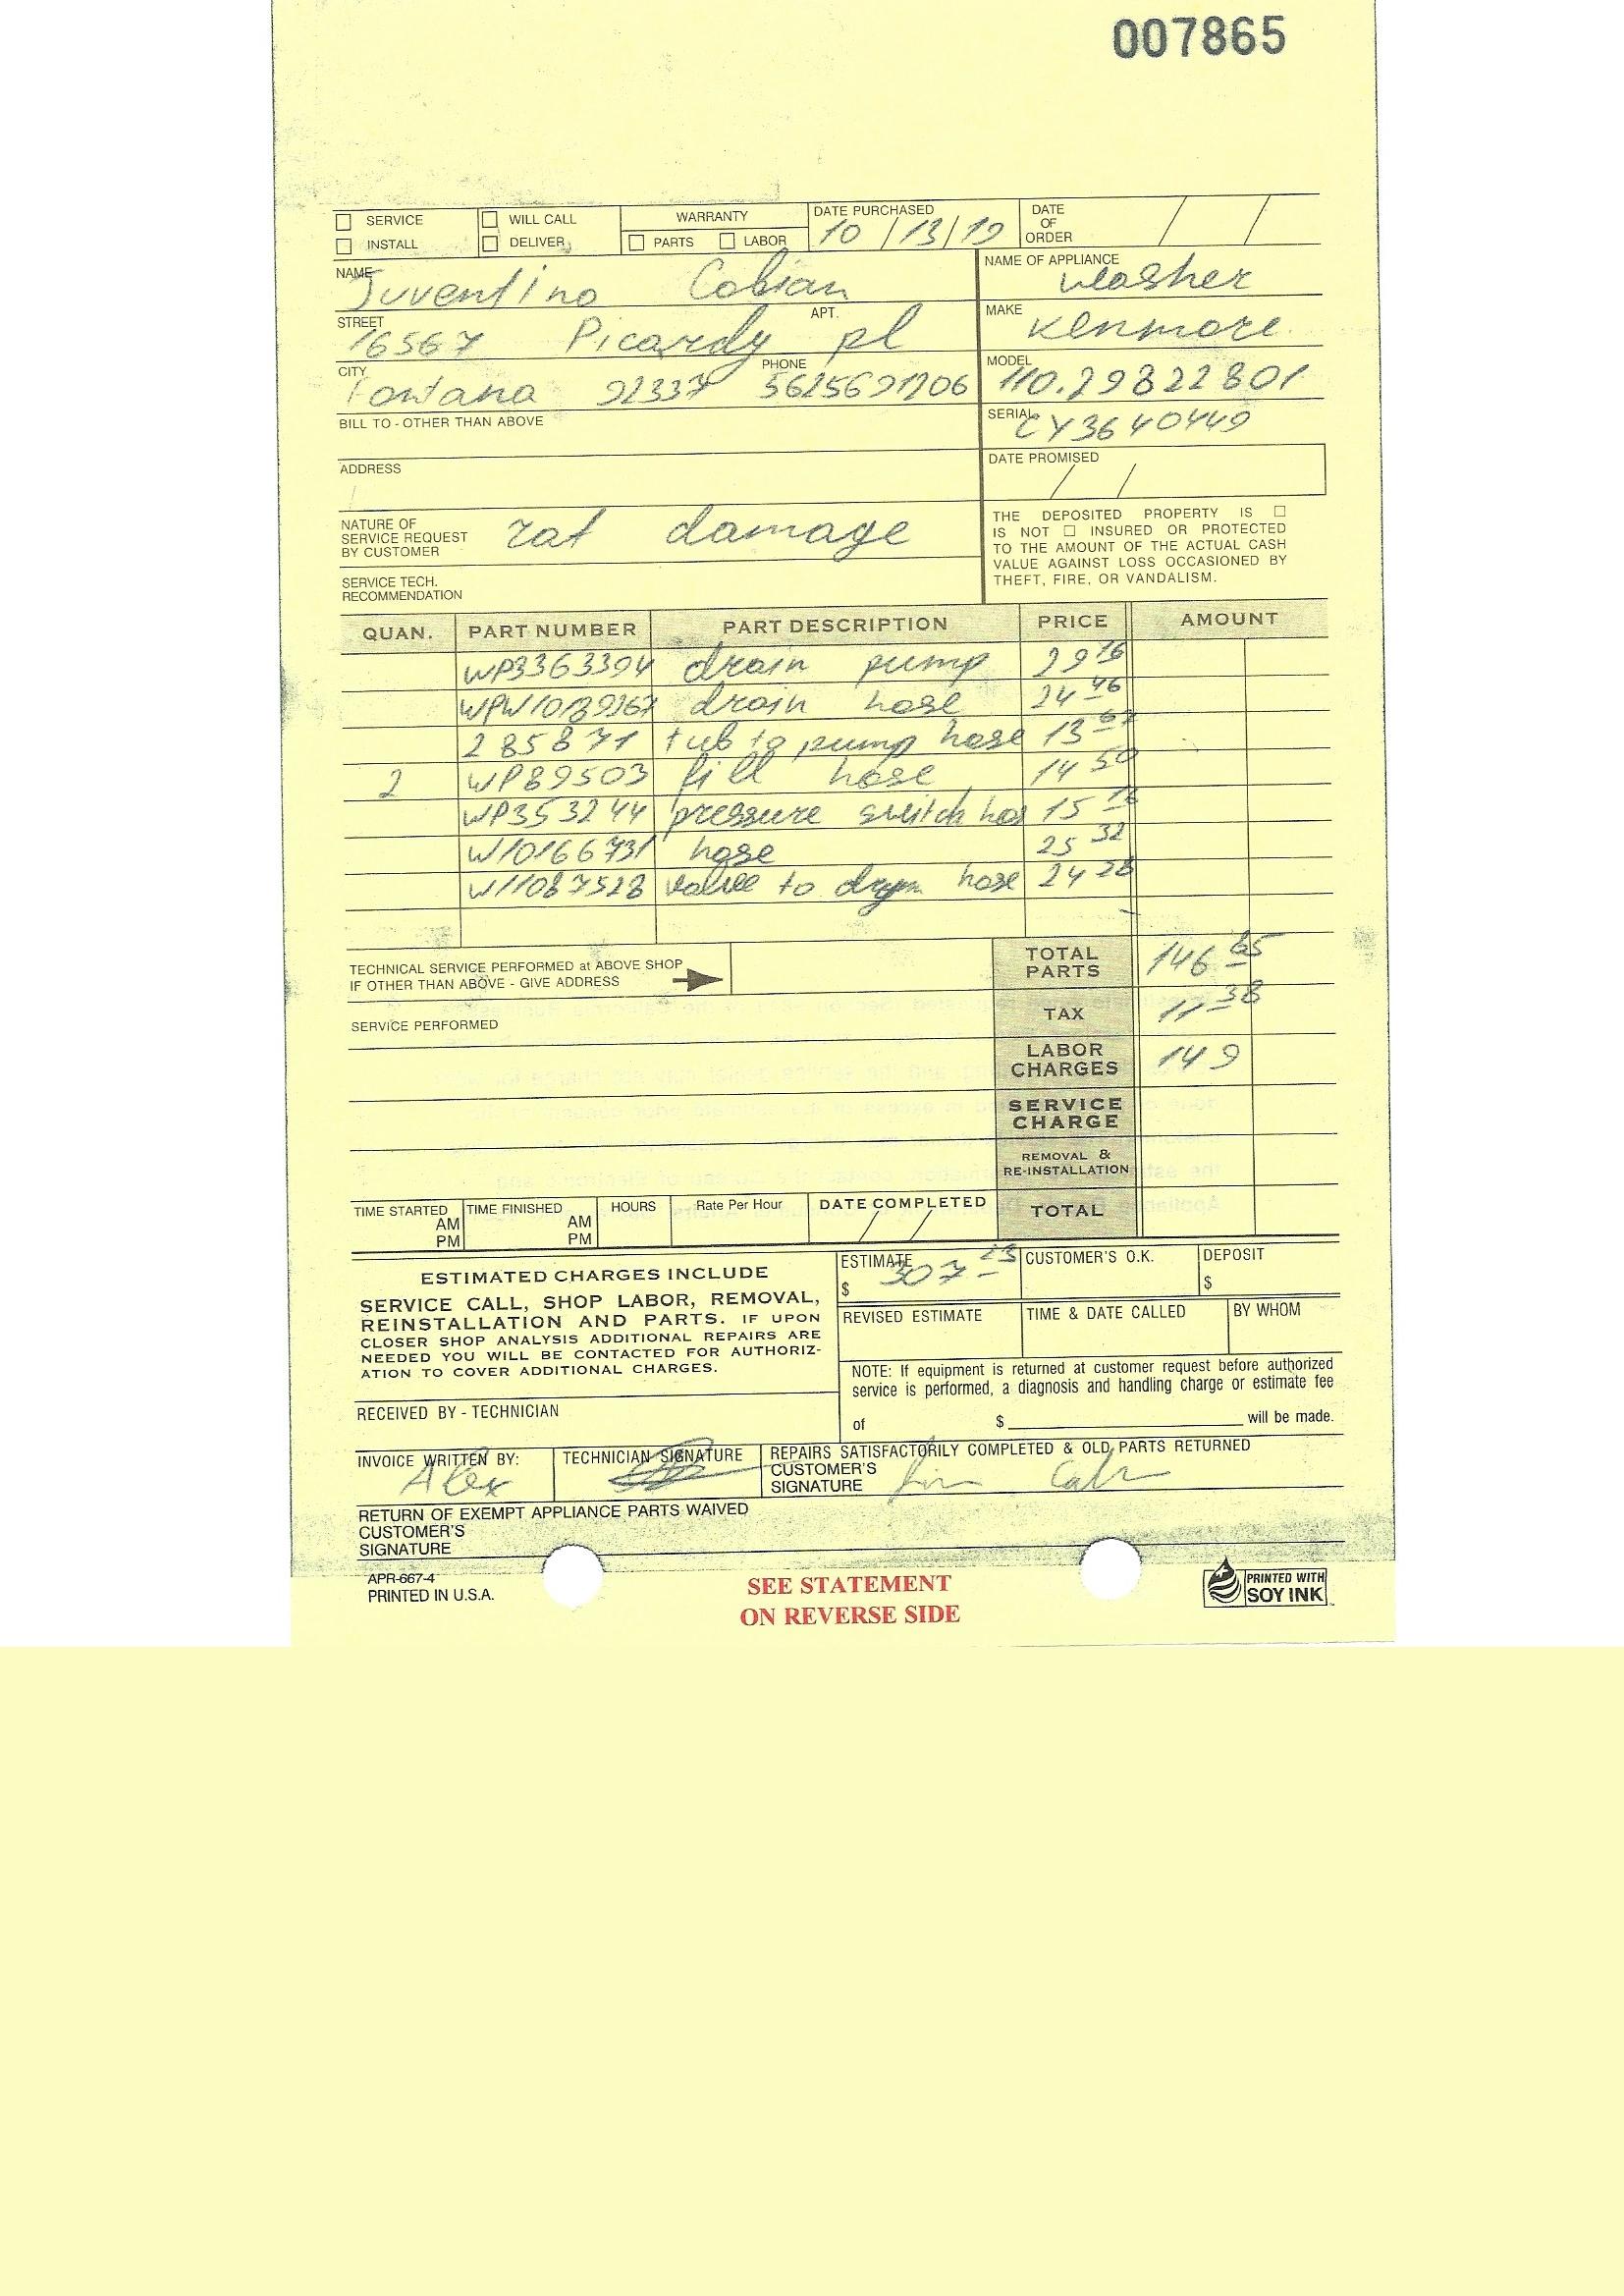 007865
SERVICE WILL CALL WARRANTY DATE PURCHASED 10/13/19 DATE OF ORDER / /
INSTALL DELIVER PARTS LABOR
NAME Juventino Cobian NAME OF APPLIANCE washer
STREET 16567 Picardy pl APT. MAKE kenmore
CITY Fontana 92337 PHONE 5625691706 MODEL 110.29822801
BILL TO - OTHER THAN ABOVE SERIAL CY3640449
ADDRESS DATE PROMISED / /
NATURE OF
SERVICE REQUEST
BY CUSTOMER rat damage
THE DEPOSITED PROPERTY IS
IS NOT INSURED OR PROTECTED
TO THE AMOUNT OF THE ACTUAL CASH
VALUE AGAINST LOSS OCCASIONED BY
THEFT, FIRE, OR VANDALISM.
SERVICE TECH.
RECOMMENDATION
QUAN. PART NUMBER PART DESCRIPTION PRICE AMOUNT
WP3363394 drain pump 29 16
drain hose 24 46
285871 tub to pump hose 13 67
2 WP89503 fill hose 14 50
WP353244 pressure switch hos 15
W10166731 hose 25 32
W11087528 to hose 24 28
TECHNICAL SERVICE PERFORMED at ABOVE SHOP
IF OTHER THAN ABOVE - GIVE ADDRESS
TOTAL PARTS 146 65
SERVICE PERFORMED TAX 11 38
LABOR CHARGES 149
SERVICE CHARGE
REMOVAL & RE-INSTALLATION
TIME STARTED AM PM TIME FINISHED AM PM HOURS Rate Per Hour DATE COMPLETED / / TOTAL
ESTIMATED CHARGES INCLUDE
SERVICE CALL, SHOP LABOR, REMOVAL,
REINSTALLATION AND PARTS. IF UPON
CLOSER SHOP ANALYSIS ADDITIONAL REPAIRS ARE
NEEDED YOU WILL BE CONTACTED FOR AUTHORIZ-
ATION TO COVER ADDITIONAL CHARGES.
ESTIMATE $ 307 CUSTOMER'S O.K. DEPOSIT $
REVISED ESTIMATE TIME & DATE CALLED BY WHOM
NOTE: If equipment is returned at customer request before authorized
service is performed, a diagnosis and handling charge or estimate fee
of $ will be made.
RECEIVED BY - TECHNICIAN
INVOICE WRITTEN BY: Alex TECHNICIAN SIGNATURE REPAIRS SATISFACTORILY COMPLETED & OLD PARTS RETURNED
CUSTOMER'S
SIGNATURE
RETURN OF EXEMPT APPLIANCE PARTS WAIVED
CUSTOMER'S
SIGNATURE
APR-667-4
PRINTED IN U.S.A.
SEE STATEMENT
ON REVERSE SIDE
PRINTED WITH
SOY INK